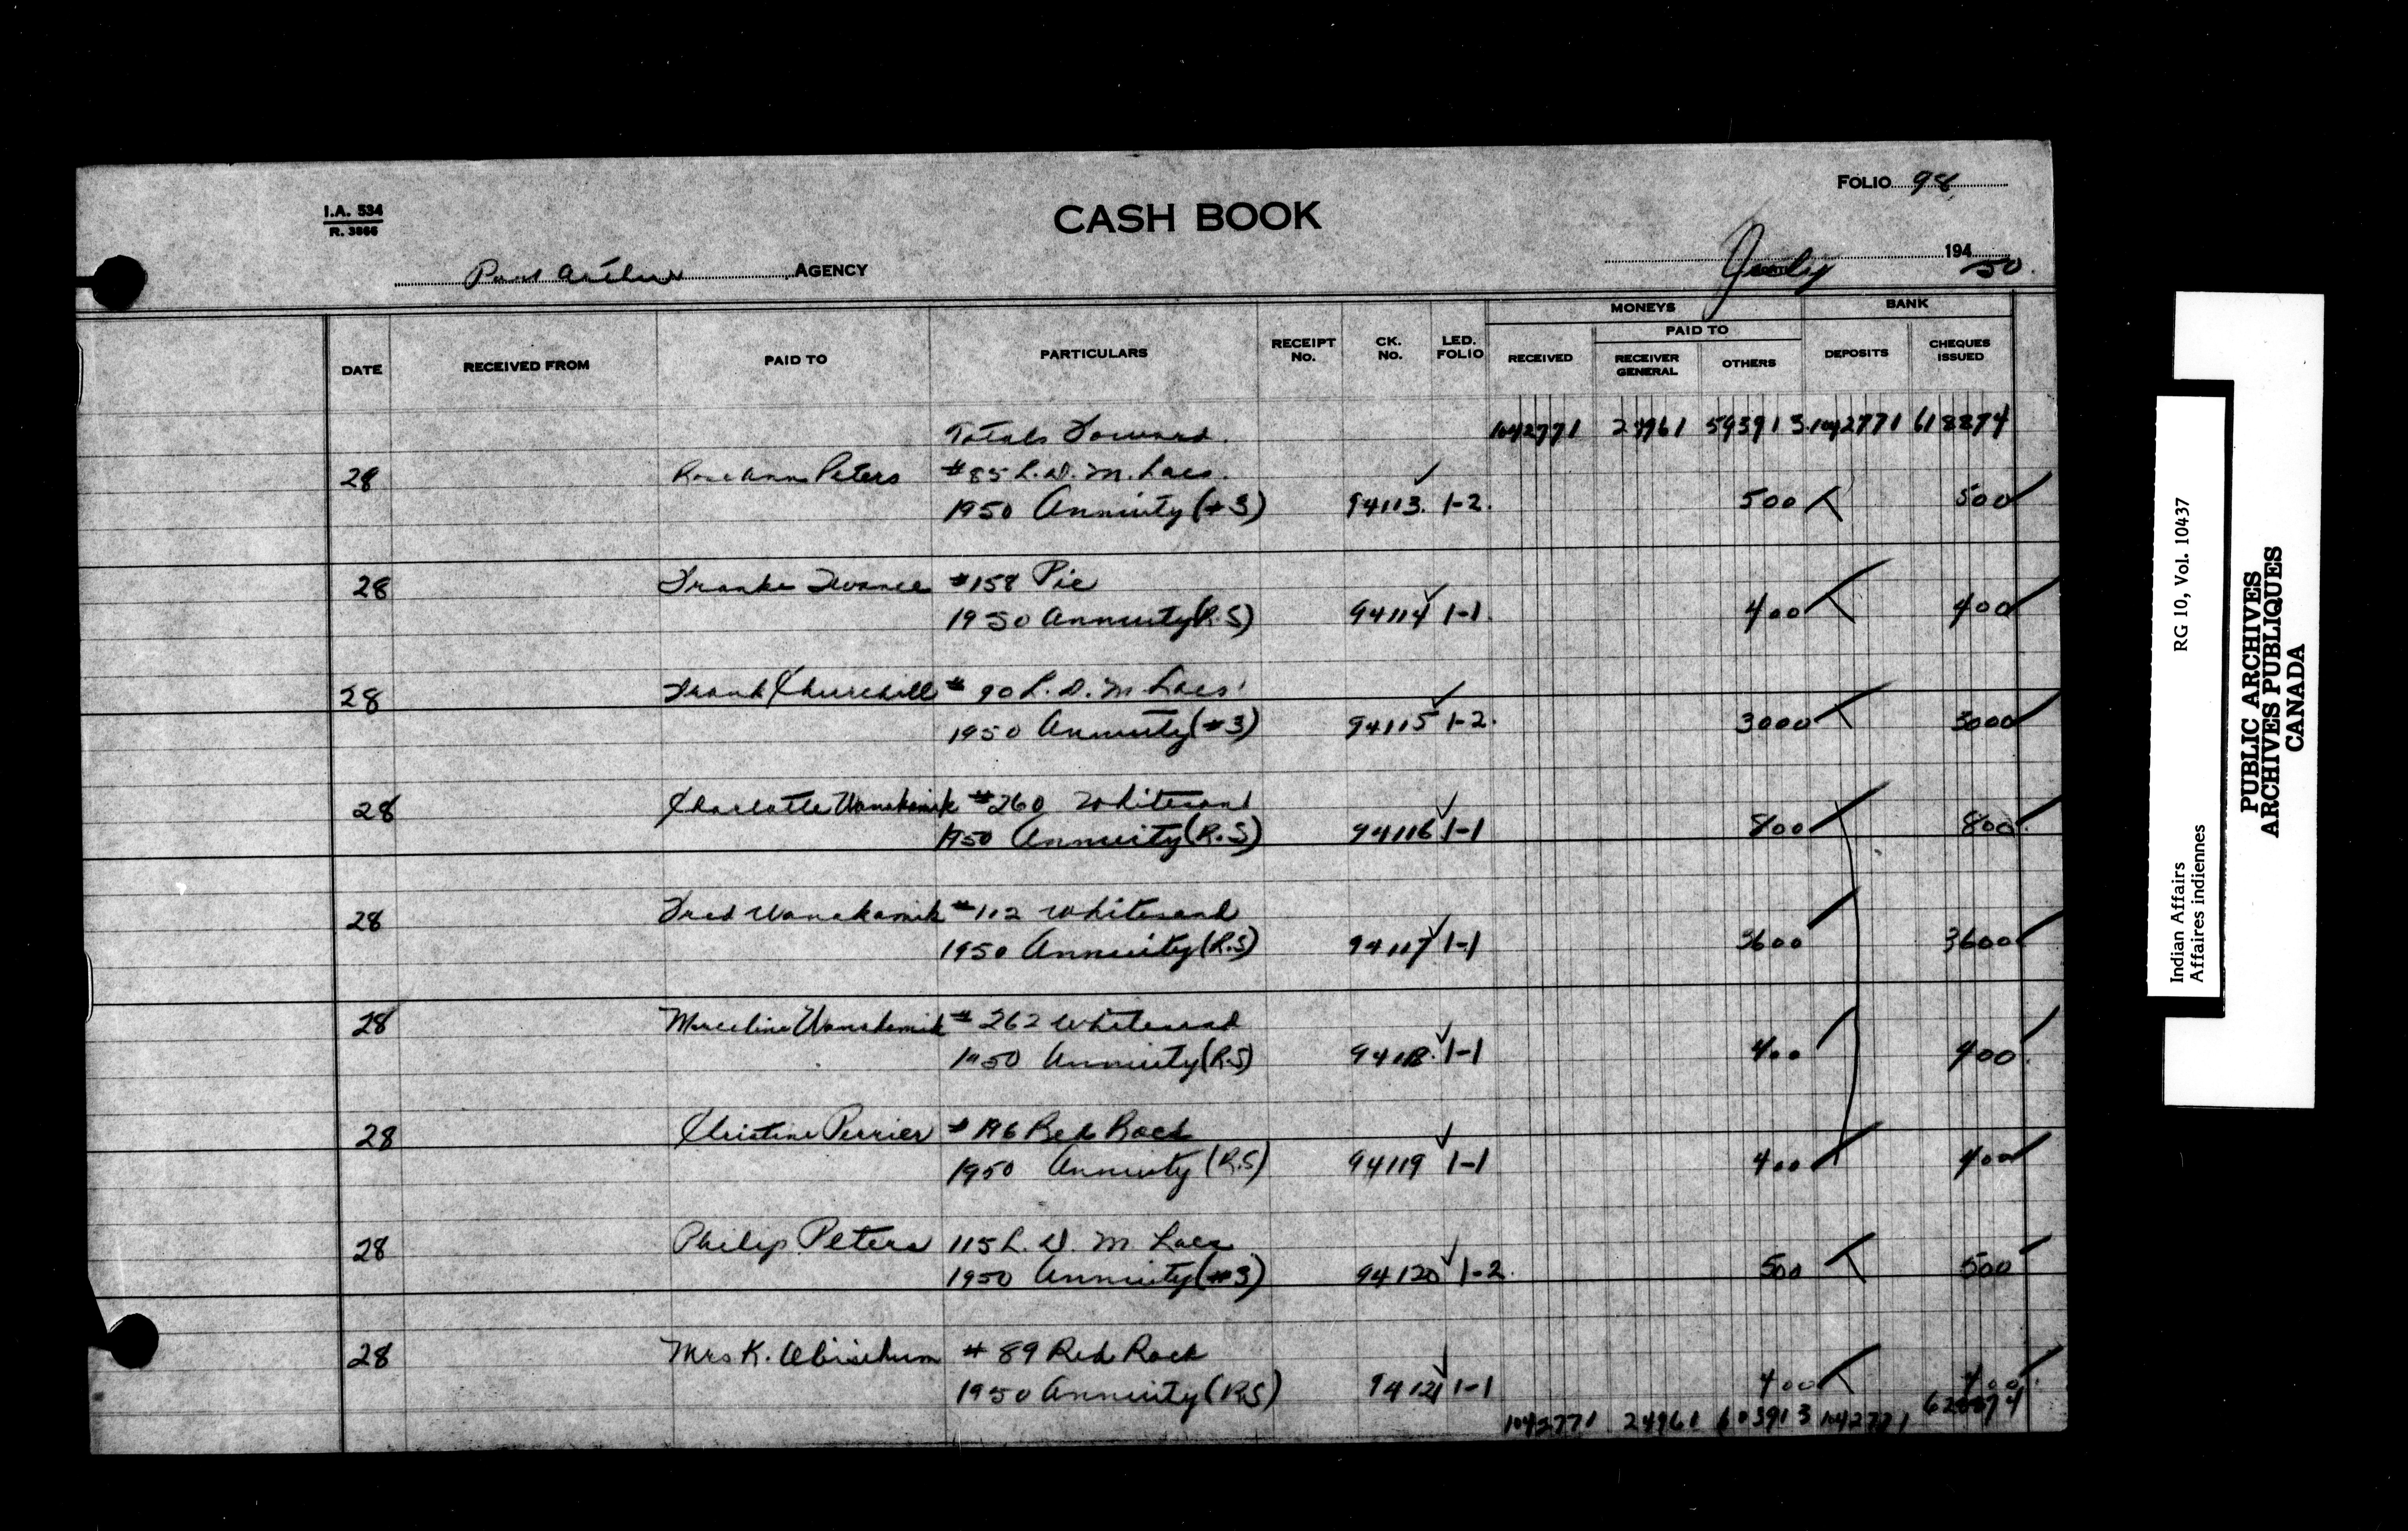 FOLIO 98
I.A. 534
R. 3866
CASH BOOK
Port Arthur AGENCY
July 194 50.
MONEYS BANK
PAID TO
DATE RECEIVED FROM PAID TO PARTICULARS RECEIPT No. CK. No. LED. FOLIO RECEIVED RECEIVER GENERAL OTHERS DEPOSITS CHEQUES ISSUED
Totals Forward. 1042771 24961 593913 1042771 618874
28 Rose Ann Peters #85 L. D. M. Lacs.
1950 Annuity (#3) 94113. 1-2. 500 500
28 #158 Pic
1950 Annuity (R.S) 94114 1-1. 400 400
28 Frank Churchill # 90 L. D. M Lacs
1950 Annuity (#3) 94115 1-2. 3000 3000
28 Charlotte Wanakamik #260 Whitesand
1950 Annuity (R.S) 94116 1-1 800 800
28 Fred Wanakamik #112 Whitesand
1950 Annuity (R.S) 94117 1-1 3600 3600
28 Marceline Wanakamik # 262 Whitesand
1950 Annuity (R.S) 94118. 1-1 400 400
28 Christine Perrier # 196 Red Rock
1950 Annuity (R.S) 94119 1-1 400 400
28 Philip Peters 115 L. D. M Lacs
1950 Annuity (#3) 94120 1-2. 500 500
28 Mrs K. # 89 Red Rock
1950 Annuity (RS) 94121 1-1 400 400
1042771 24961 603913 1042771 628874
Indian Affairs RG 10, Vol. 10437
Affaires indiennes
PUBLIC ARCHIVES
ARCHIVES PUBLIQUES
CANADA